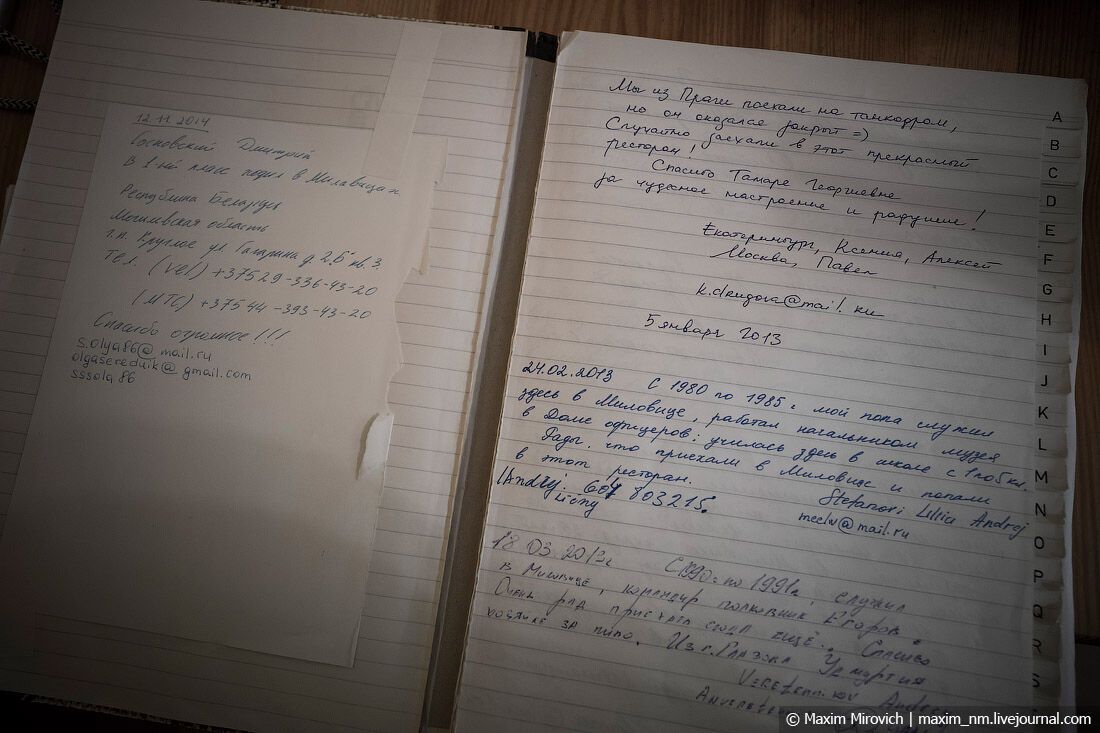 12.11.2014
Сосновский Дмитрий
В 1-ый класс пошел в Миловицах
Республика Беларусь
Могилевская область
г.п. Круглое ул. Гагарина д. 2,б кв. 3.
Тел. (vel) +37529-336-43-20
(МТС) +37544-393-43-20
Спасибо огромное!!!
s.olya86@mail.ru
olgasereduik@gmail.com
sssola86
Мы из Праги поехали на танкодром,
но он оказался закрыт =)
Случайно заехали в этот прекрасный
ресторан!
Спасибо Тамаре Георгиевне
за чудесное настроение и радушие!
Екатеринбург, Ксения, Алексей
Москва, Павел
k.drugova@mail.ru
5 января 2013
24.02.2013 С 1980 по 1985 г. мой папа служил
здесь в Миловице, работал начальником музея
в Доме офицеров; училась здесь в школе с 1 по 5 кл.
Рады, что приехали в Миловице и попали
в этот ресторан.
Stefanovi Lilia Andrej
Andrej. 607 803215.
ličny
mcclv@mail.ru
18 03 2013г С 1990г. по 1991г. служил
в Миловице, командир полковник Егоров.
Очень рад приехать сюда ещё. Спасибо
за пиво. Из г. Глазова Удмуртия
Veretennikov Andrey
A
B
C
D
E
F
G
H
I
J
K
L
M
N
O
P
Q
R
S
© Maxim Mirovich | maxim_nm.livejournal.com